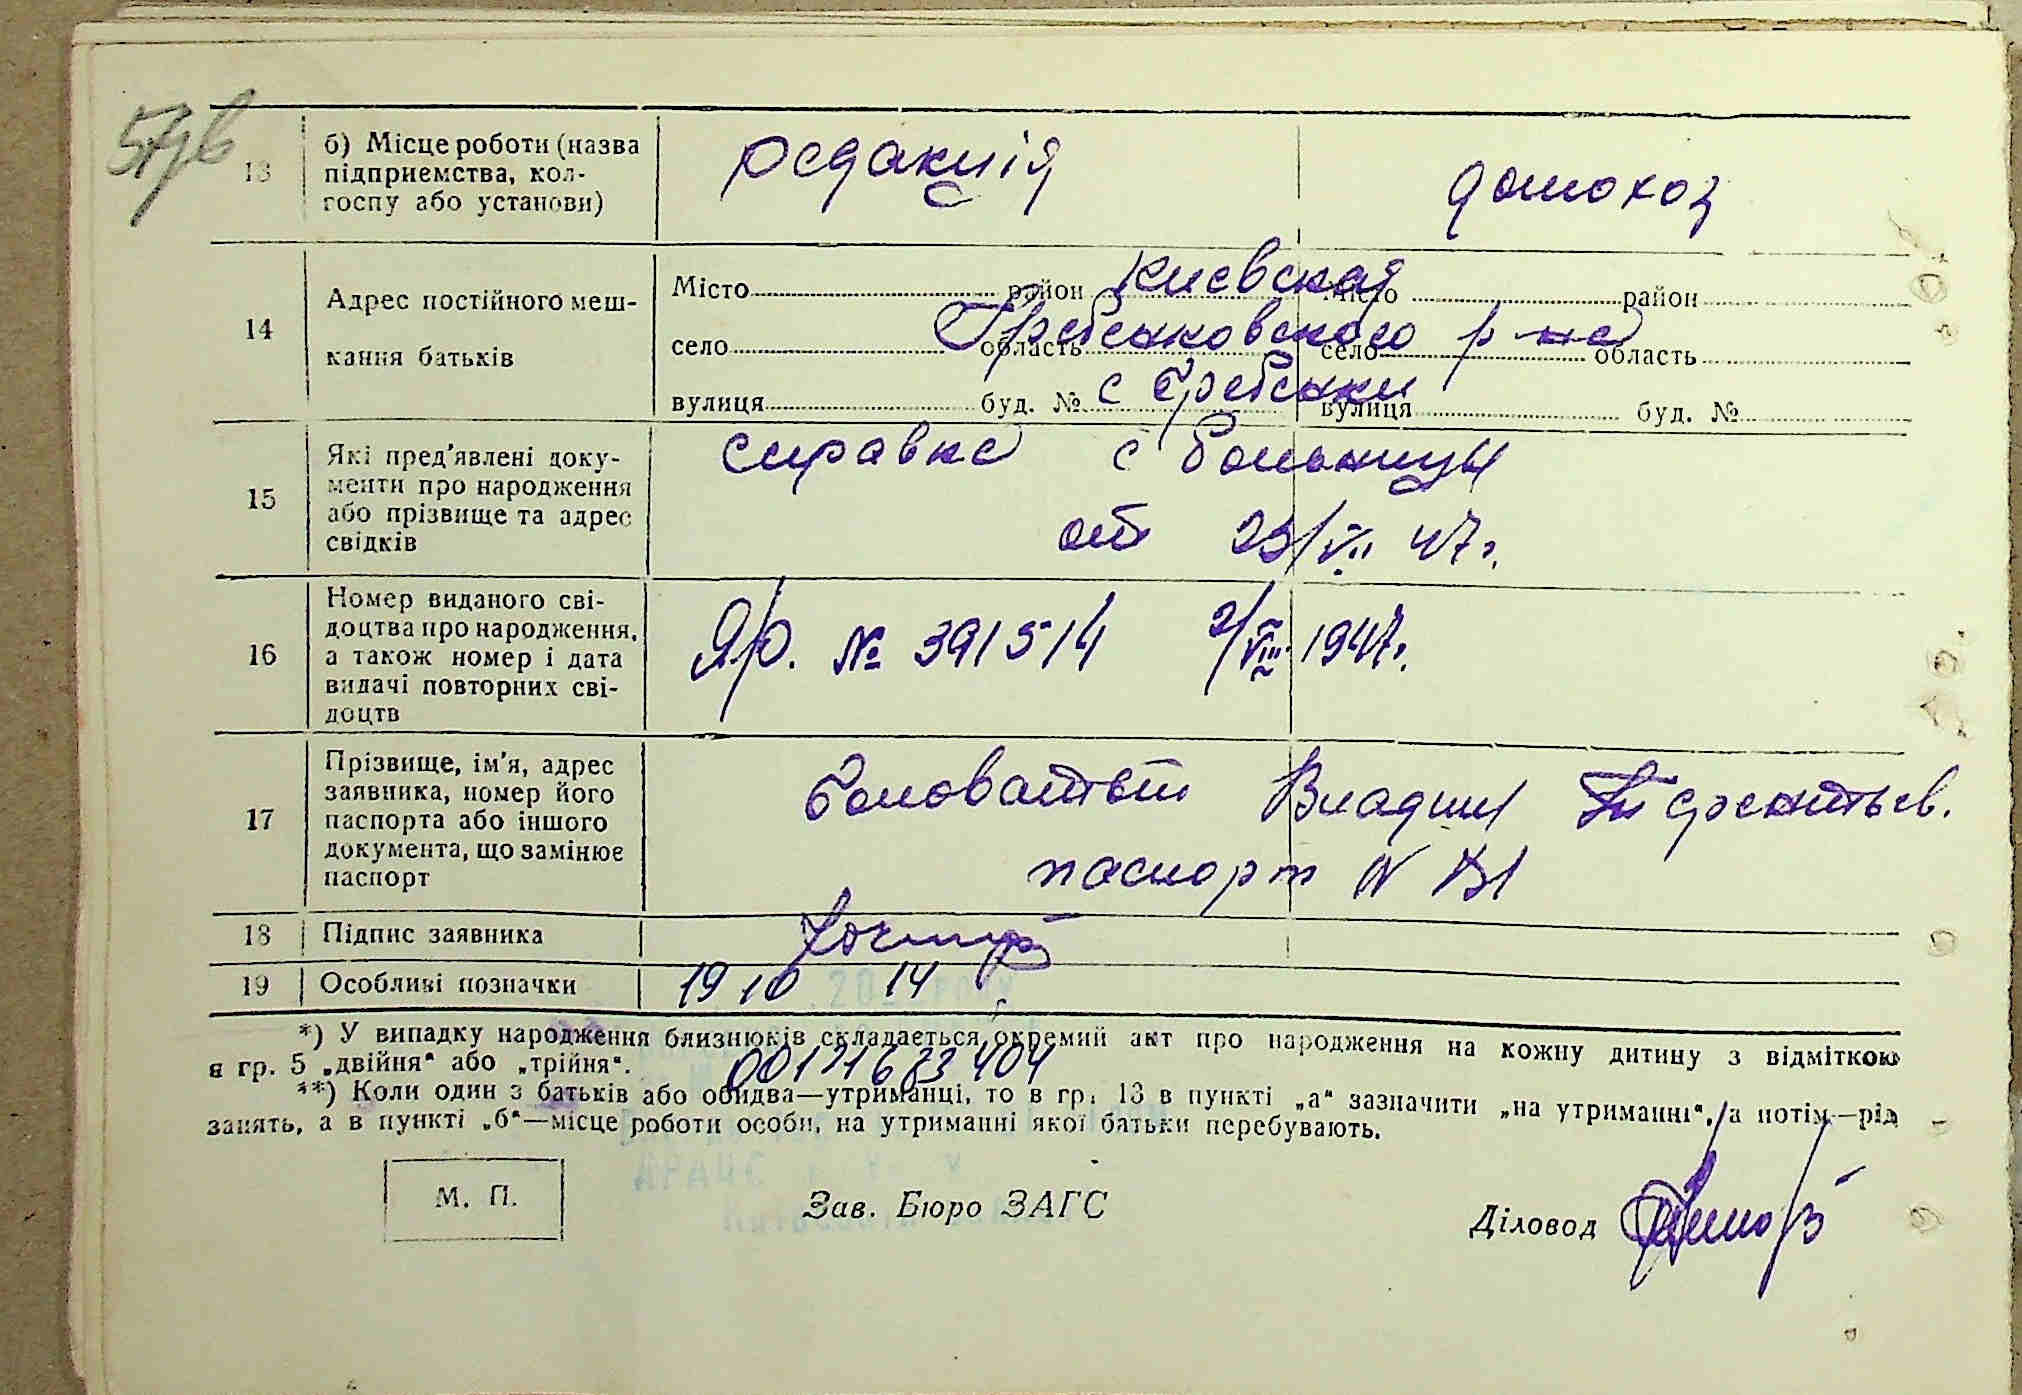 57зв
13
б) Місце роботи (назва
підприємства, кол-
госпу або установи)
редакція
домохоз
14
Адрес постійного меш-
кання батьків
Місто район Киевская Місто район
село область Гребенковского р-на село область
вулиця буд. № с Гребенки вулиця буд. №
15
Які пред'явлені доку-
менти про народження
або прізвище та адрес
свідків
справка с больницы
от 23/VII 47г.
16
Номер виданого сві-
доцтва про народження,
а також номер і дата
видачі повторних сві-
доцтв
ЯЮ. № 391514 2/VIII 1947г.
17
Прізвище, ім'я, адрес
заявника, номер його
паспорта або іншого
документа, що замінює
паспорт
Головатый Владим Терентьев.
паспорт N
18
Підпис заявника
19
Особливі позначки
19 10 14
*) У випадку народження близнюків складається окремий акт про народження на кожну дитину з відміткою
в гр. 5 „двійня“ або „трійня“.
00171633404
**) Коли один з батьків або обидва—утриманці, то в гр. 13 в пункті „а“ зазначити „на утриманні“, а потім—рід
занять, а в пункті „б“—місце роботи особи, на утриманні якої батьки перебувають.
М. П.
Зав. Бюро ЗАГС
Діловод